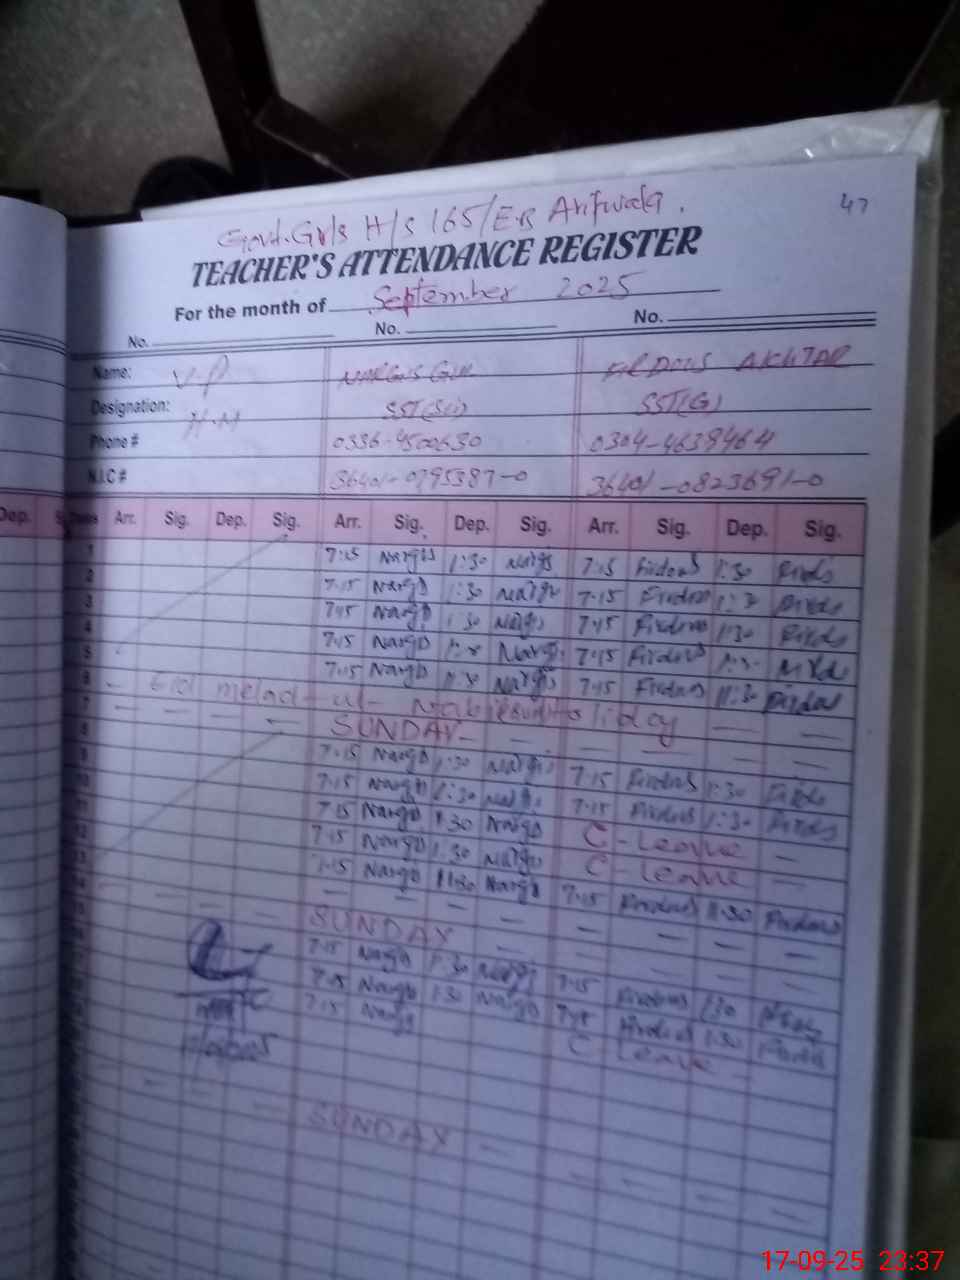 47
Govt. Grls H/S 165/E-B Arifwala.
TEACHER'S ATTENDANCE REGISTER
For the month of September 2025
No. No. No.
Name: V.P NARGIS GUL FIRDOUS AKHTAR
Designation: H.M SST(Sci) SST(G)
Phone # 0336-4500630 0304-4639464
N.I.C # 36401-0795387-0 36401-0823691-0
Dep. S Arr. Sig. Dep. Sig. Arr. Sig. Dep. Sig. Arr. Sig. Dep. Sig.
1 7:15 Nargis 1:30 Nargis 7:15 Firdous 1:30
2 7:15 Nargis 1:30 Nargis 7:15 Firdous 1:30
3 7:15 Nargis 1:30 Nargis 7:15 Firdous 1:30
4 7:15 Nargis Nargis 7:15 Firdous
5 7:15 Nargis 11:30 Nargis 7:15 Firdous 11:30 Firdous
6 Eid melad-ul- Holiday
7 SUNDAY
8 7:15 Nargis 1:30 Nargis 7:15 Firdous 1:30
9 7:15 Nargis 1:30 Nargis 7:15 Firdous 1:30 Firdous
10 7:15 Nargis 1:30 Nargis C-Leave
11 7:15 Nargis 1:30 Nargis C-Leave
12 7:15 Nargis 11:30 Nargis 7:15 Firdous 11:30 Firdous
13
14 SUNDAY
15 7:15 Nargis 1:30 Nargis 7:15 Firdous 1:30
16 7:15 Nargis 1:30 Nargis 7:15 Firdous 1:30
7:15 Nargis C Leave
SUNDAY
17-09-25 23:37